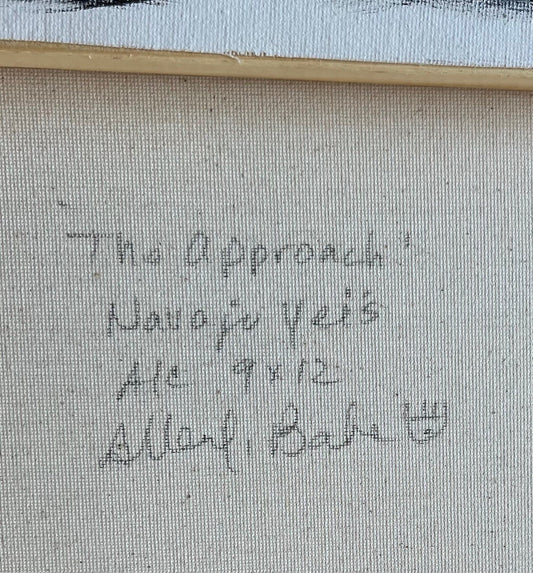 "The Approach"
Navajo Yei's
A/C 9x12
Allen, Bahe